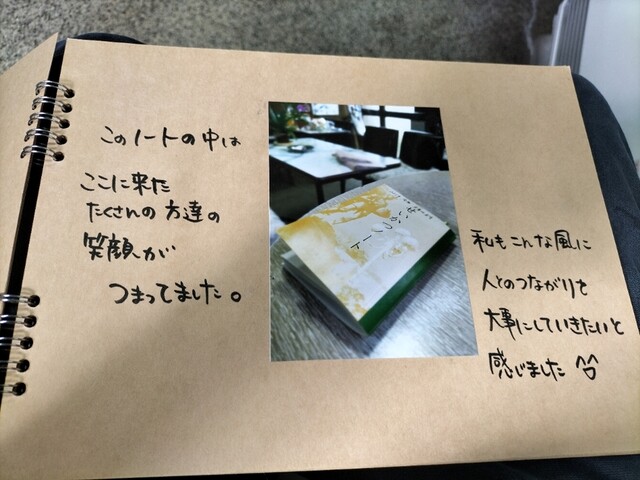 このノートの中は
ここに来た
たくさんの方達の
笑顔が
つまってました。
ノート
私もこんな風に
人とのつながりを
大事にしていきたいと
感じました